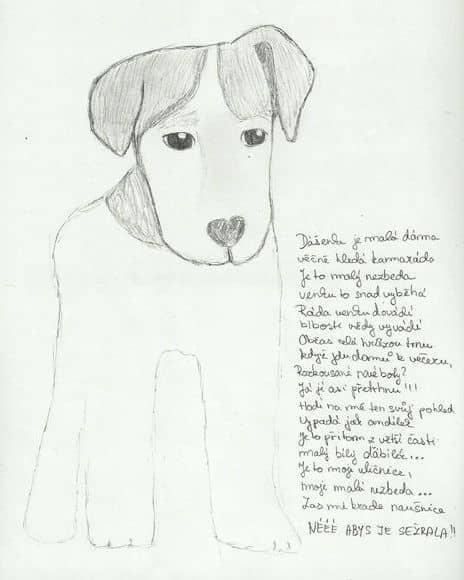 Dášenka je malá dáma
věčně hledá kamaráda
Je to malý nezbeda
venku to snad vyběhá
Ráda venku dovádí
blbosti vždy vyvádí
Občas celá hrůzou trnu
když jdu domů k večeru,
Rozkousané nové boty?
Já jí asi přetrhnu!!!
Hodí na mě ten svůj pohled
Vypadá jak andílek
Je to přitom z větší části
malý bílý ďáblík...
Je to moje uličnice,
moje malá nezbeda...
Zas mi krade naušnice
NÉÉÉ ABYS JE SEŽRALA!!